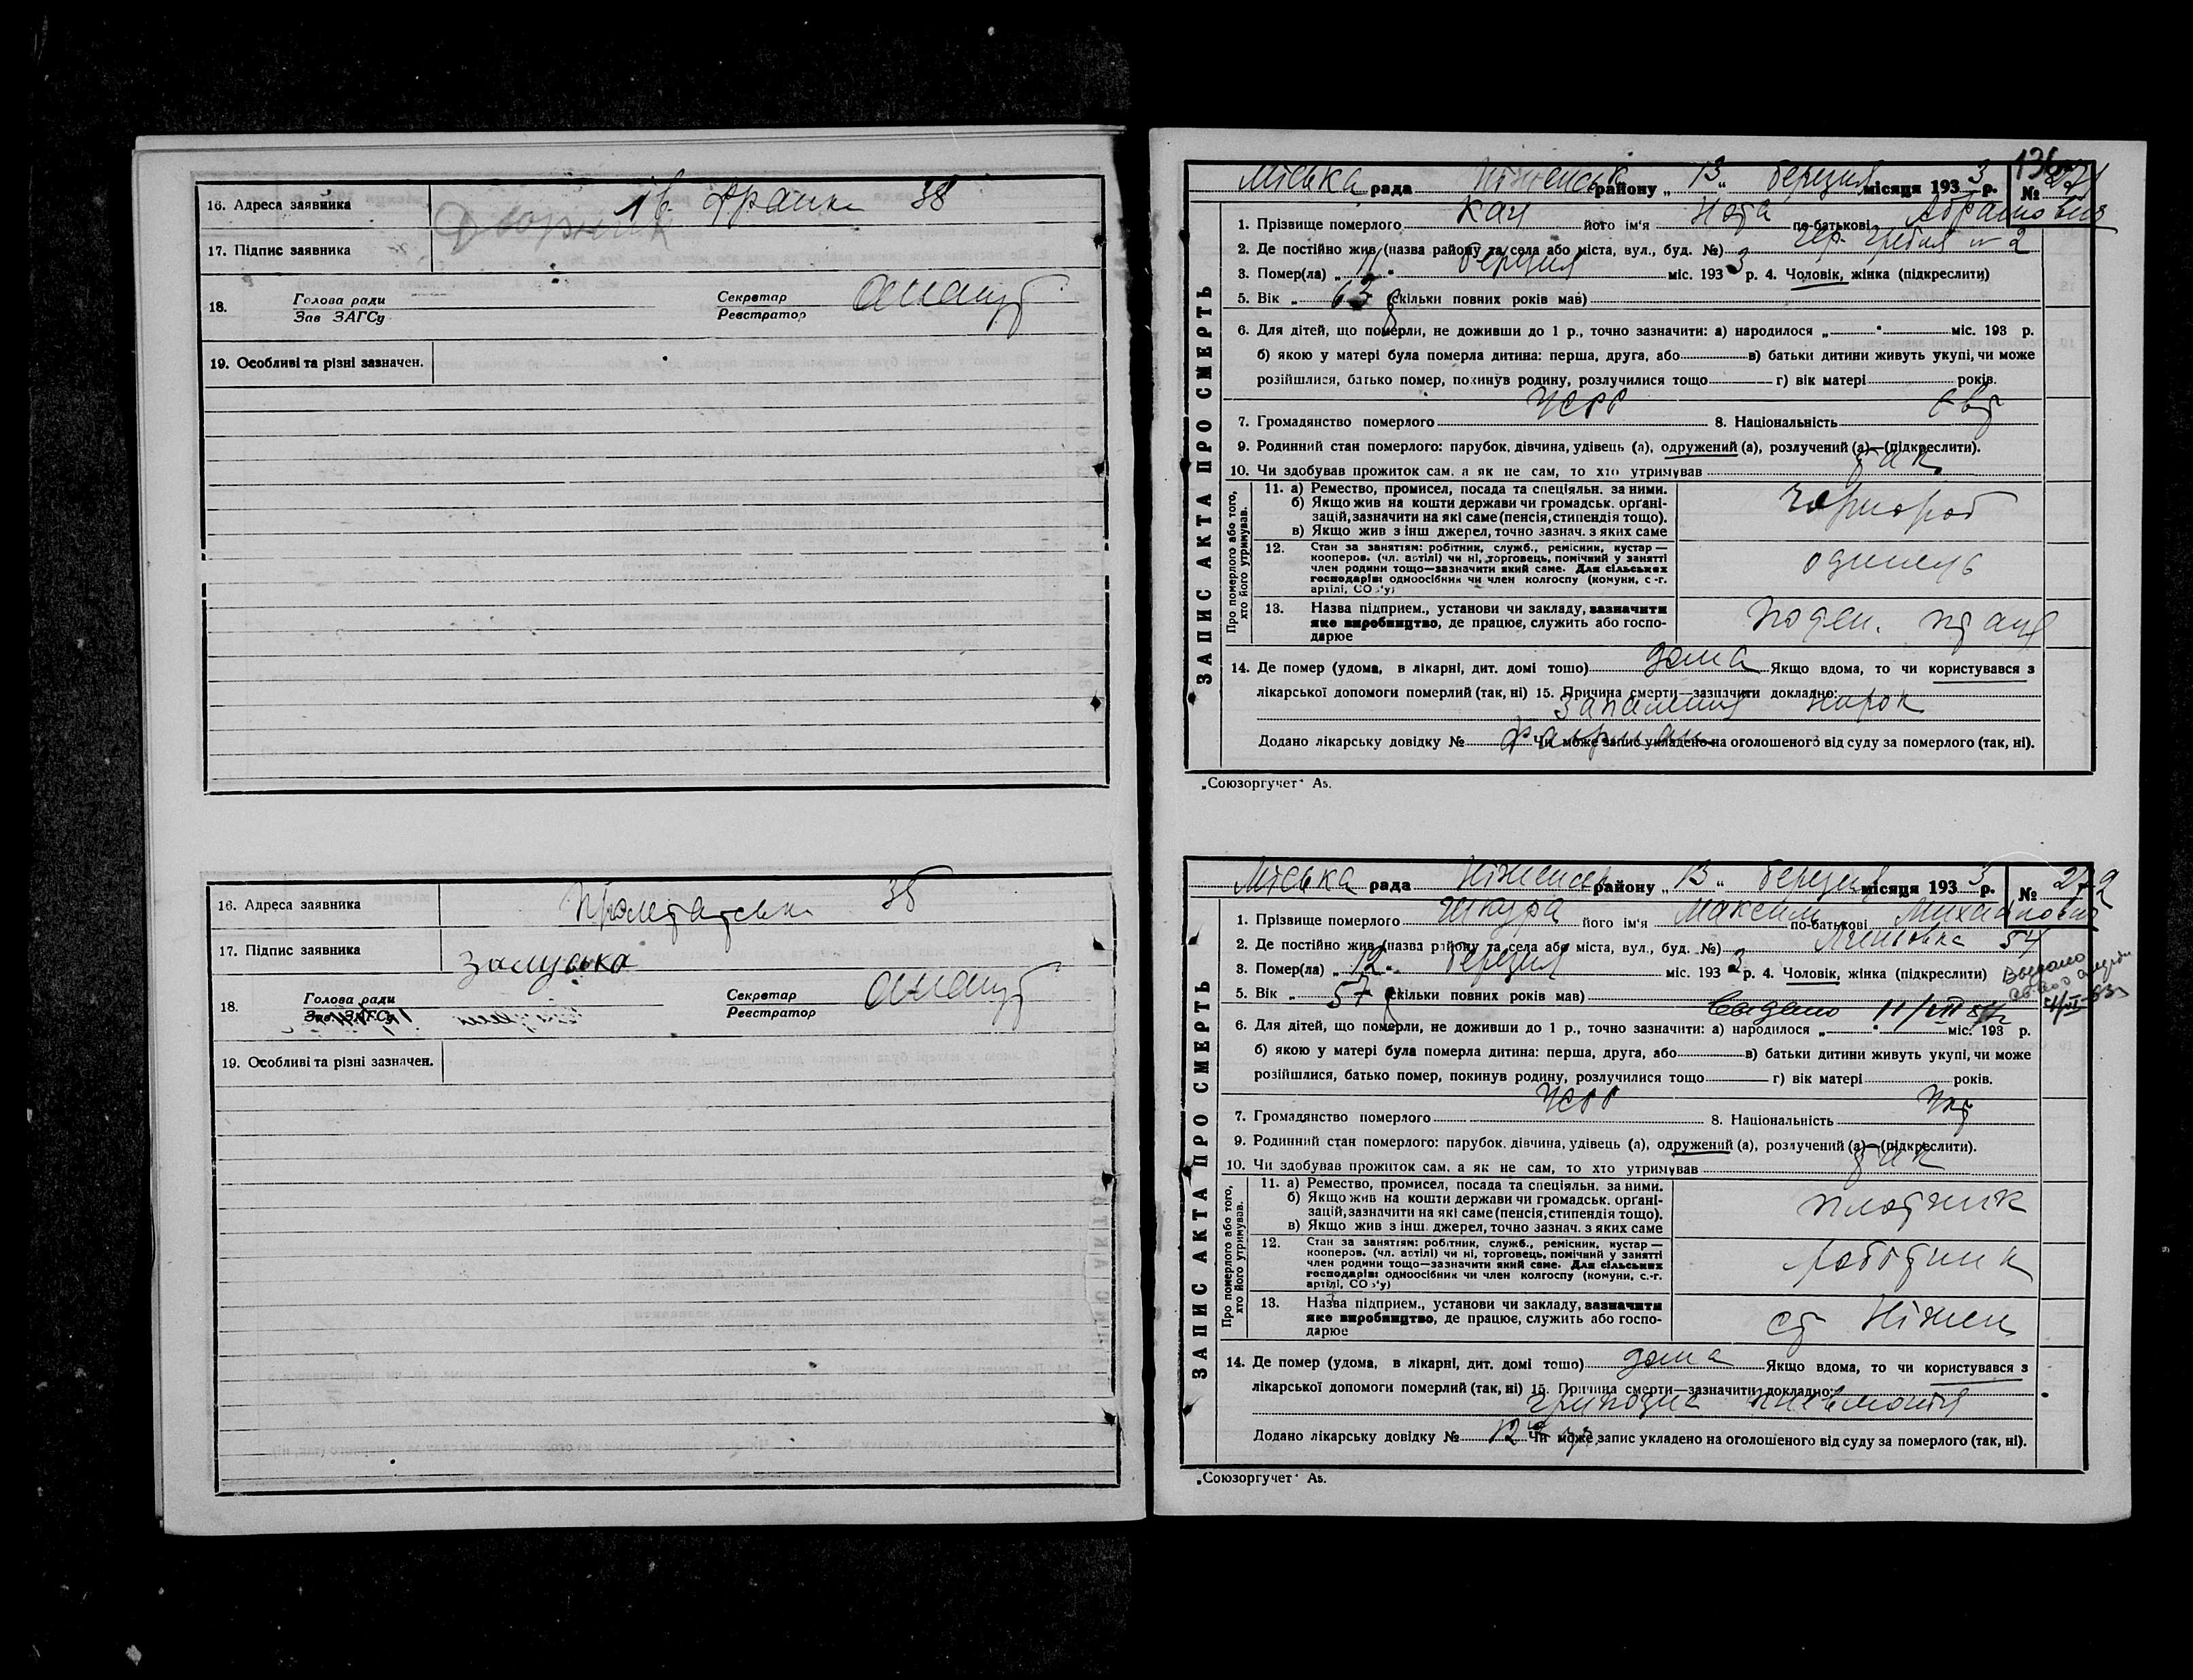 16. Адреса заявника Ів. Франка 38
17. Підпис заявника
18. Голова ради Секретар
Зав ЗАГСу Реєстратор
19. Особливі та різні зазначен.
16. Адреса заявника Пролетарська 38
17. Підпис заявника
18. Голова ради Секретар
Зав. ЗАГСу Реєстратор
19. Особливі та різні зазначен.
136
Міська рада Ніженськ району „ 13 “ березня місяця 1933 р. № 271
ЗАПИС АКТА ПРО СМЕРТЬ
1. Прізвище померлого Кац його ім'я Нота по-батькові Абрамович
2. Де постійно жив (назва району та села або міста, вул., буд. №) № 2
3. Помер(ла) „ 11 “ березня міс. 1933 р. 4. Чоловік, жінка (підкреслити)
5. Вік „ 63 (скільки повних років мав)
6. Для дітей, що померли, не доживши до 1 р., точно зазначити: а) народилося „ “ міс. 193 р.
б) якою у матері була померла дитина: перша, друга, або в) батьки дитини живуть укупі, чи може
розійшлися, батько помер, покинув родину, розлучилися тощо г) вік матері років.
7. Громадянство померлого УСРР 8. Національність Євр
9. Родинний стан померлого: парубок, дівчина, удівець (а), одружений (а), розлучений (а)—(підкреслити).
10. Чи здобував прожиток сам, а як не сам, то хто утримував так
Про померлого або того, хто його утримував.
11. а) Ремество, промисел, посада та спеціяльн. за ними.
б) Якщо жив на кошти держави чи громадськ. органі-
зацій, зазначити на які саме (пенсія, стипендія тощо).
в) Якщо жив з інш джерел, точно зазнач. з яких саме
чорнороб
12. Стан за заняттям: робітник, служб., ремісник, кустар —
кооперов. (чл. артілі) чи ні, торговець, помічний у занятті
член родини тощо—зазначити який саме. Для сільських
господарів: одноосібник чи член колгоспу (комуни, с.-г.
артілі, СОЗ'у)
13. Назва підприєм., установи чи закладу, зазначити
яке виробництво, де працює, служить або госпо-
дарює
Поден. праця
14. Де помер (удома, в лікарні, дит. домі тощо) дома Якщо вдома, то чи користувався з
лікарської допомоги померлий (так, ні) 15. Причина смерти—зазначити докладно:
Запалення нирок
Додано лікарську довідку № Чи може запис укладено на оголошеного від суду за померлого (так, ні).
„Союзоргучет“ А5.
Міська рада Ніженськ району „ 13 “ березня місяця 1933 р. № 272
ЗАПИС АКТА ПРО СМЕРТЬ
1. Прізвище померлого Шкура його ім'я Максим по-батькові Михайлович
2. Де постійно жив (назва району та села або міста, вул., буд. №) 54
3. Помер(ла) „ 12 “ березня міс. 1933 р. 4. Чоловік, жінка (підкреслити)
5. Вік „ 57 (скільки повних років мав)
6. Для дітей, що померли, не доживши до 1 р., точно зазначити: а) народилося „ “ міс. 193 р.
б) якою у матері була померла дитина: перша, друга, або в) батьки дитини живуть укупі, чи може
розійшлися, батько помер, покинув родину, розлучилися тощо г) вік матері років.
7. Громадянство померлого УСРР 8. Національність Укр
9. Родинний стан померлого: парубок, дівчина, удівець (а), одружений (а), розлучений (а)—(підкреслити).
10. Чи здобував прожиток сам, а як не сам, то хто утримував так
Про померлого або того, хто його утримував.
11. а) Ремество, промисел, посада та спеціяльн. за ними.
б) Якщо жив на кошти держави чи громадськ. органі-
зацій, зазначити на які саме (пенсія, стипендія тощо).
в) Якщо жив з інш. джерел, точно зазнач. з яких саме
плотник
12. Стан за заняттям: робітник, служб., ремісник, кустар —
кооперов. (чл. артілі) чи ні, торговець, помічний у занятті
член родини тощо—зазначити який саме. Для сільських
господарів: одноосібник чи член колгоспу (комуни, с.-г.
артілі, СОЗ'у)
робітник
13. Назва підприєм., установи чи закладу, зазначити
яке виробництво, де працює, служить або госпо-
дарює
ст Ніжен
14. Де помер (удома, в лікарні, дит. домі тощо) дома Якщо вдома, то чи користувався з
лікарської допомоги померлий (так, ні) 15. Причина смерти—зазначити докладно:
грипозна пневмонія
Додано лікарську довідку № 12 Чи може запис укладено на оголошеного від суду за померлого (так, ні).
„Союзоргучет“ А5.